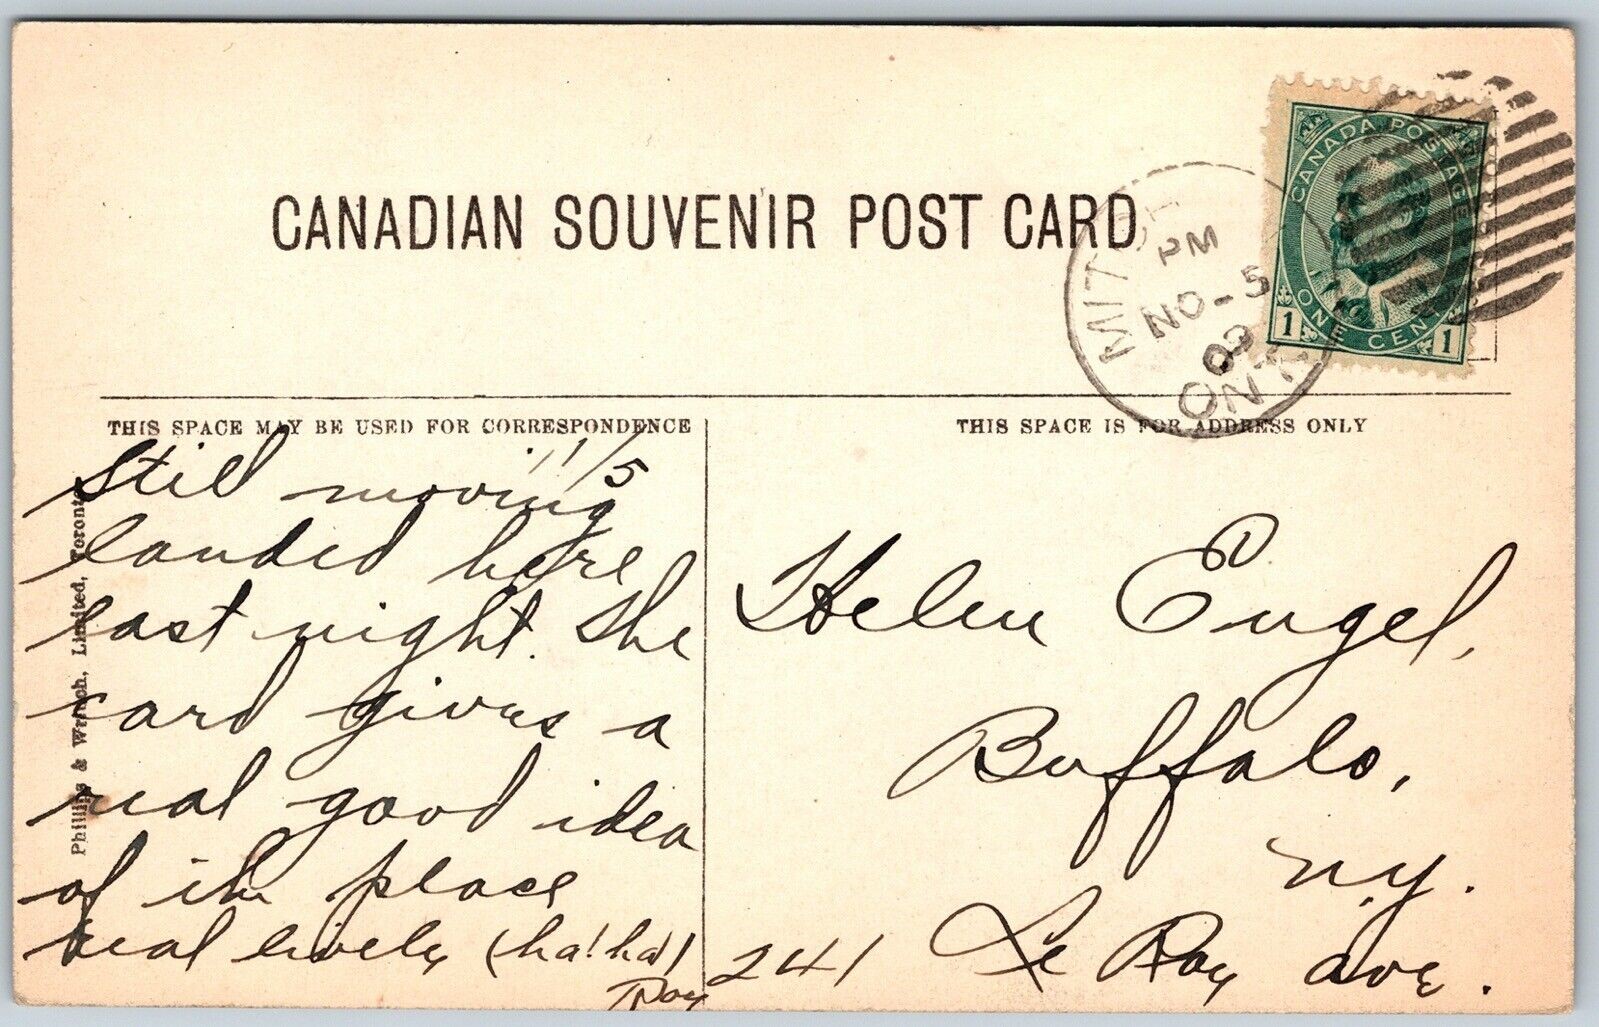 CANADIAN SOUVENIR POST CARD
CANADA POSTAGE
1 ONE CENT 1
PM
NO - 5
09
ONT
THIS SPACE MAY BE USED FOR CORRESPONDENCE
THIS SPACE IS FOR ADDRESS ONLY
11/5
Still moving
landed here
last night. The
card gives a
real good idea
of the place
real lively (ha! ha)
Roy
Helen Engel,
Buffalo,
N.Y.
241 Le Roy Ave.
Phillips & Wrinch, Limited, Toronto